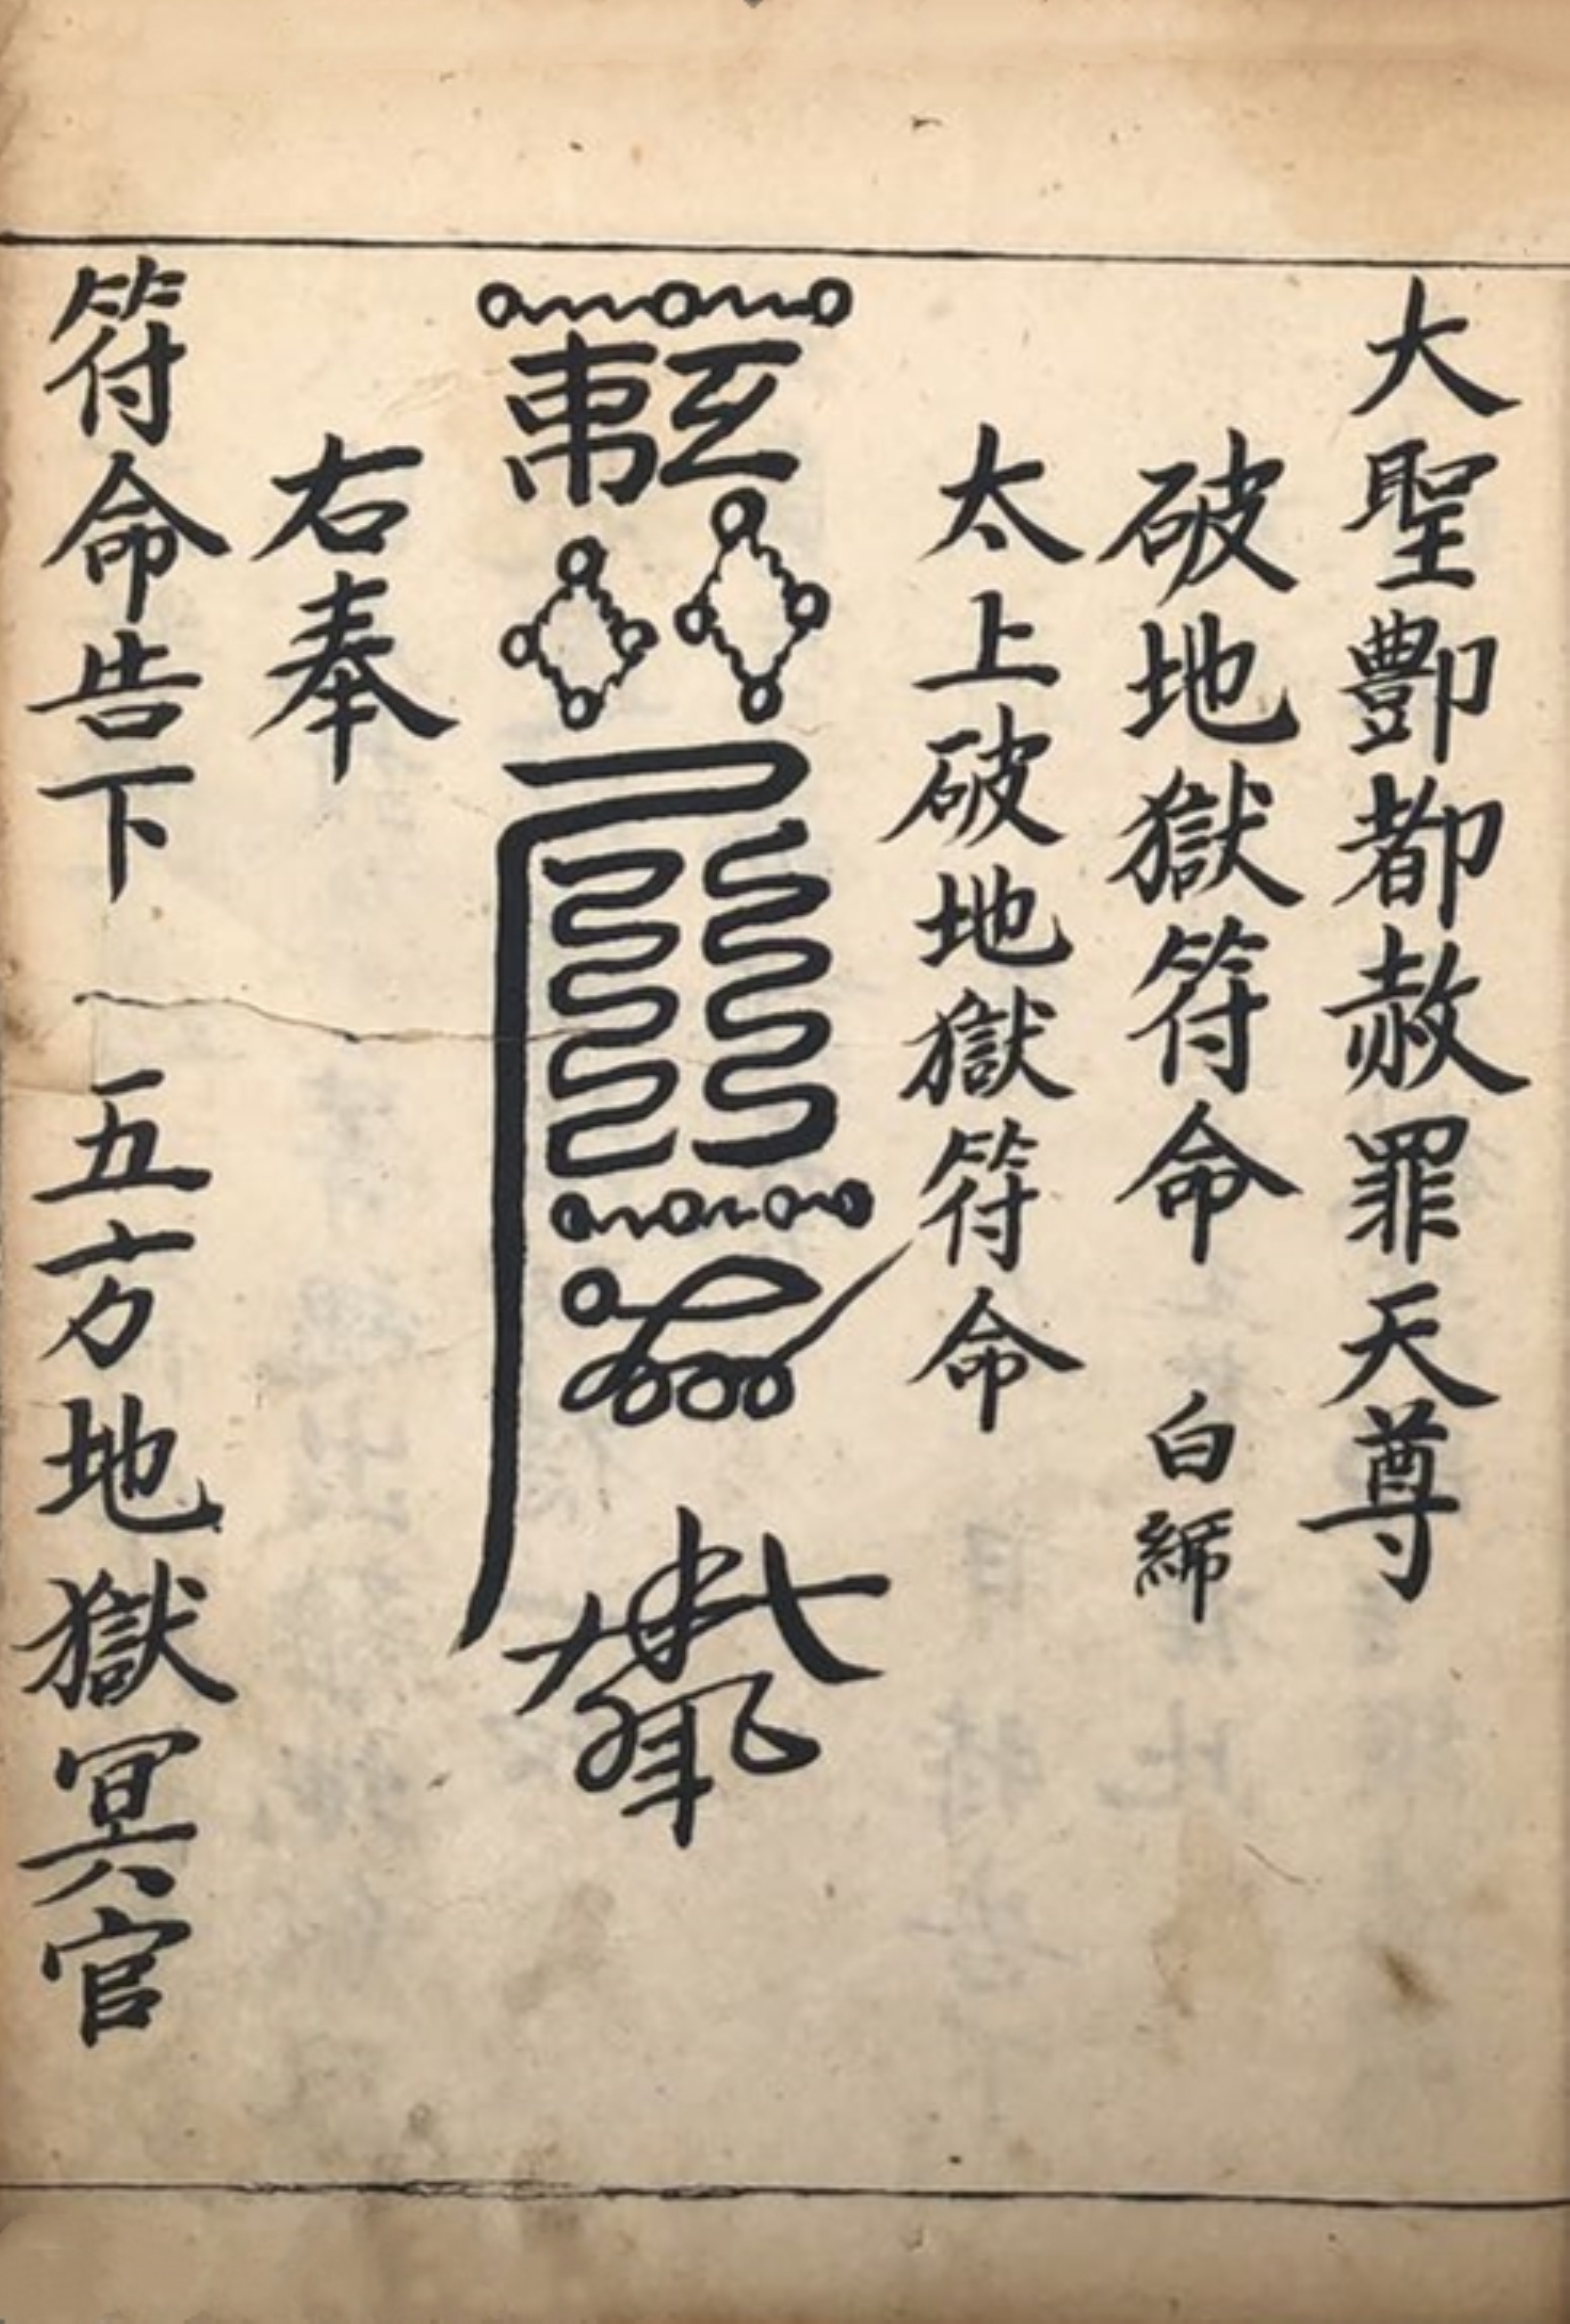 大聖酆都赦罪天尊
破地獄符命 白
太上破地獄符命
右奉
符命告下 五方地獄冥官